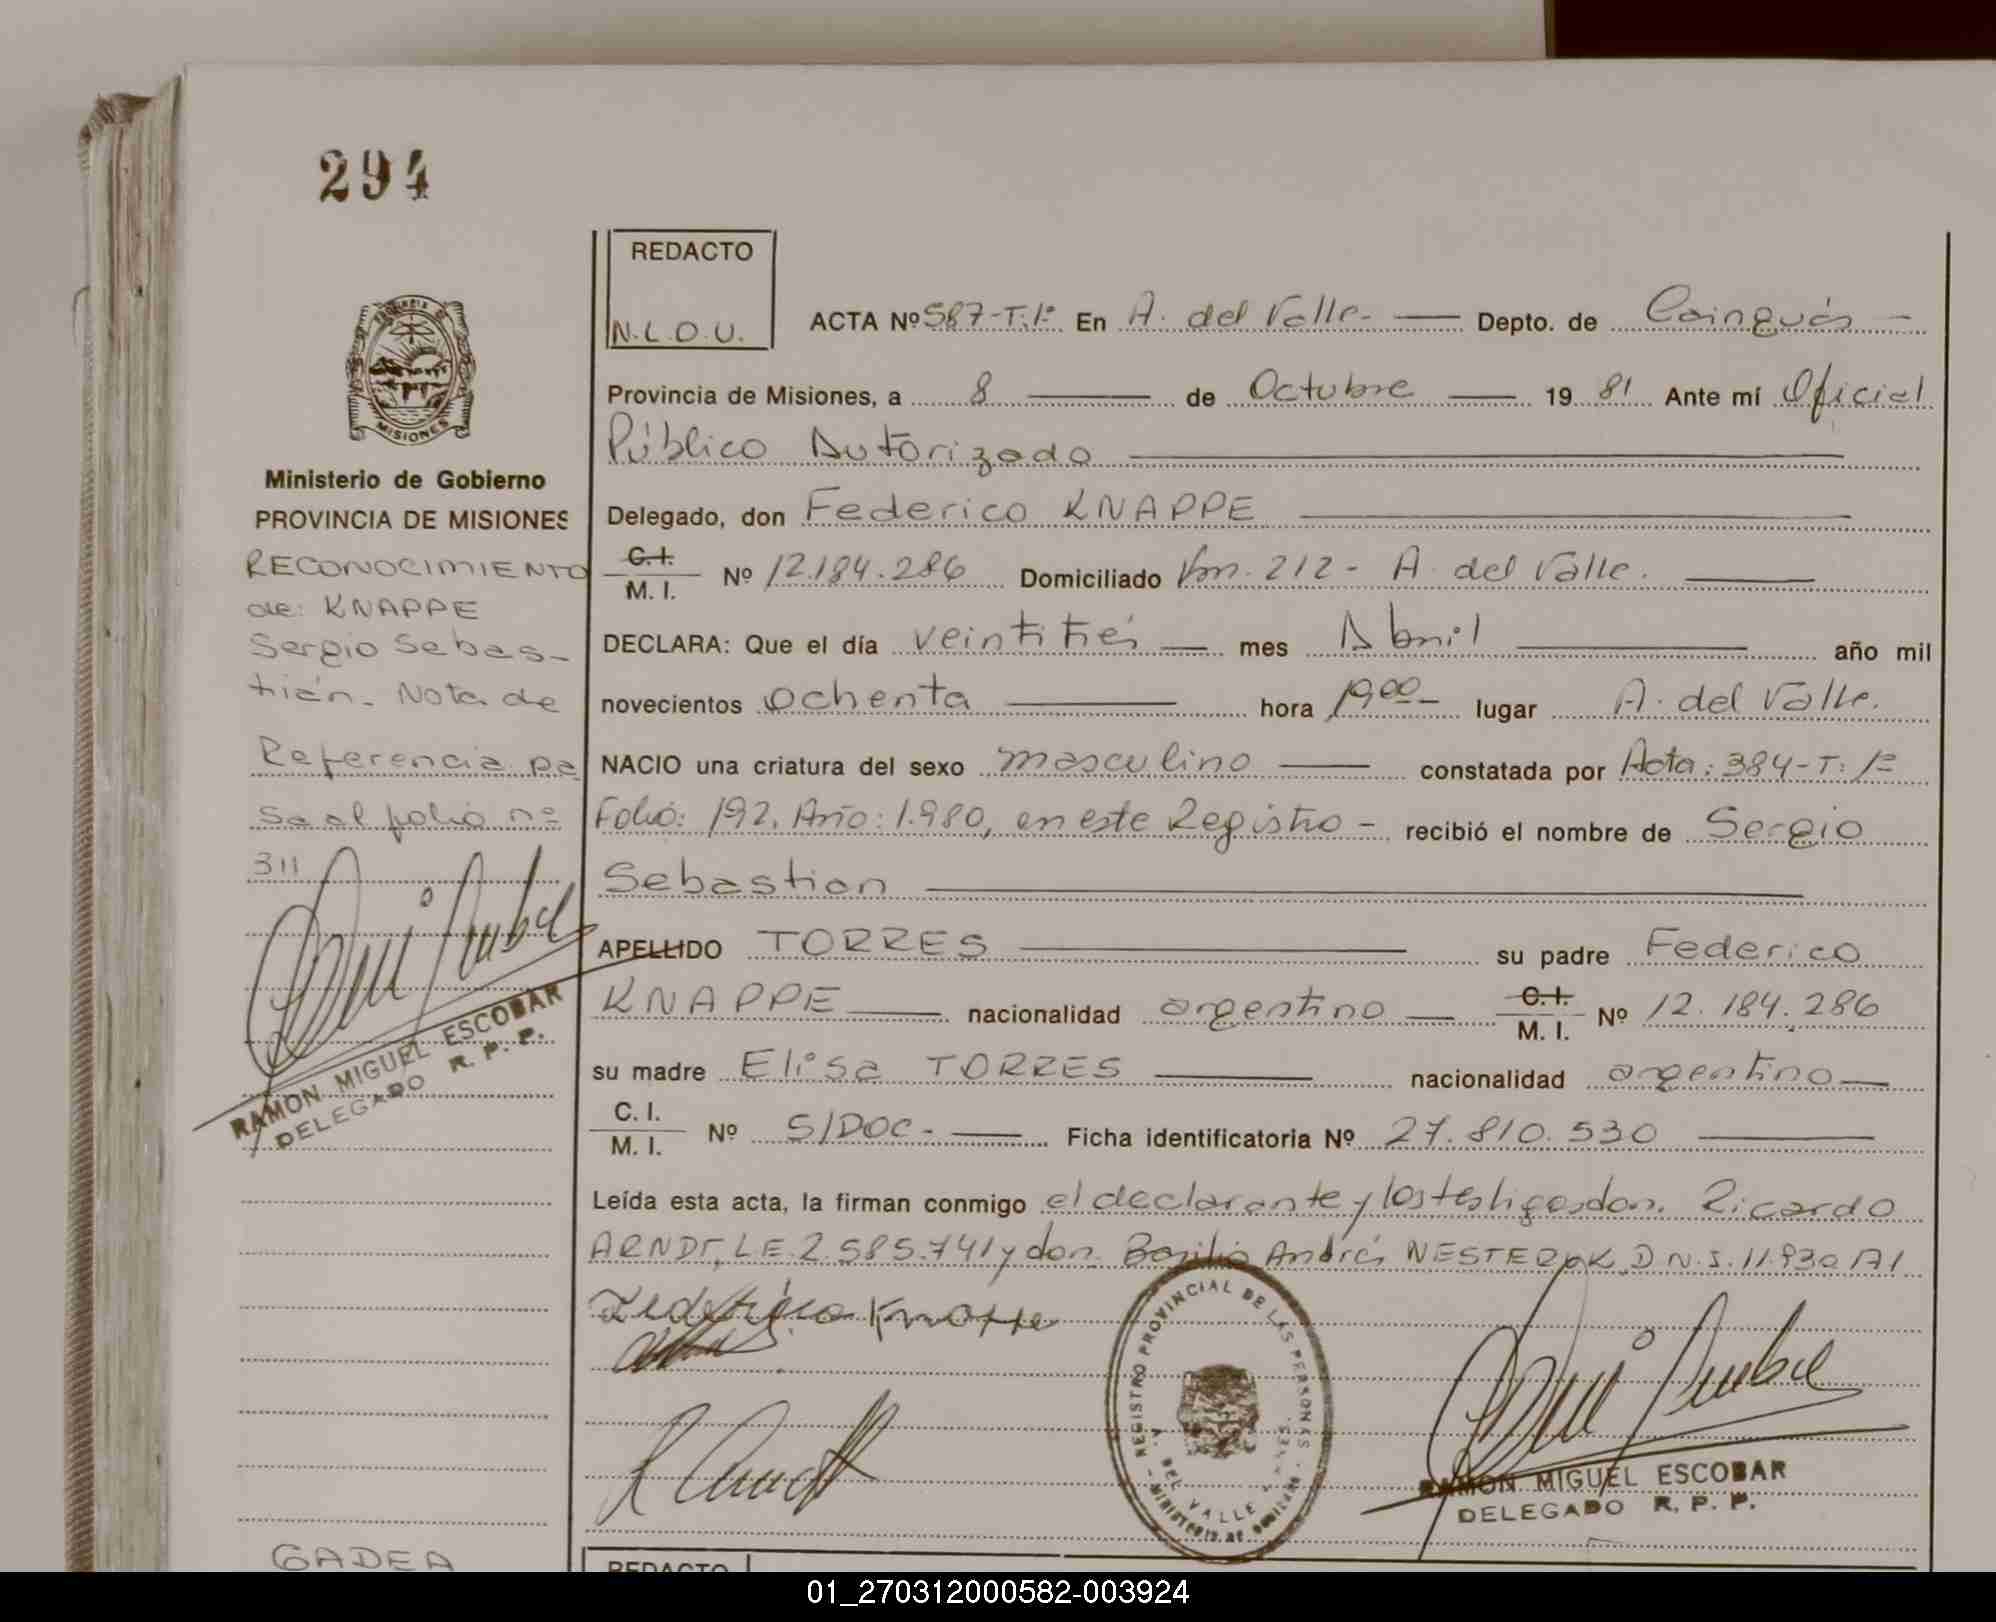 294
REDACTO
N.L.O.U.
ACTA Nº 587-T.1º En A. del Valle.- Depto. de Cainguás -
Provincia de Misiones, a 8 de Octubre 19 81 Ante mí Oficial
Público Autorizado
Delegado, don Federico KNAPPE
C.I. M.I. Nº 12.184.286 Domiciliado Km. 212- A. del Valle.
DECLARA: Que el día veintitrés mes Abril año mil
novecientos ochenta hora 19,00- lugar A. del Valle.
NACIO una criatura del sexo masculino constatada por Acta: 384-T: 1º
Folio: 192. Año: 1.980, en este Registro - recibió el nombre de Sergio
Sebastian
APELLIDO TORRES su padre Federico
KNAPPE nacionalidad argentino C.I. M.I. Nº 12.184.286
su madre Elisa TORRES nacionalidad argentino
C.I. M.I. Nº S/DOC- Ficha identificatoria Nº 27.810.530
Leída esta acta, la firman conmigo el declarante y los testigos don. Ricardo
ARNDT, L.E. 2.585.741 y don. Basilio Andrés D.N.I.
Federico Knappe
PROVINCIA
MISIONES
Ministerio de Gobierno
PROVINCIA DE MISIONES
RECONOCIMIENTO
de: KNAPPE
Sergio Sebas-
tián. Nota de
Referencia pa
sa al folio nº
311
RAMON MIGUEL ESCOBAR
DELEGADO R. P. P.
REGISTRO PROVINCIAL DE LAS PERSONAS
A. DEL VALLE
RAMON MIGUEL ESCOBAR
DELEGADO R. P. P.
GADEA
REDACTO
01_270312000582-003924